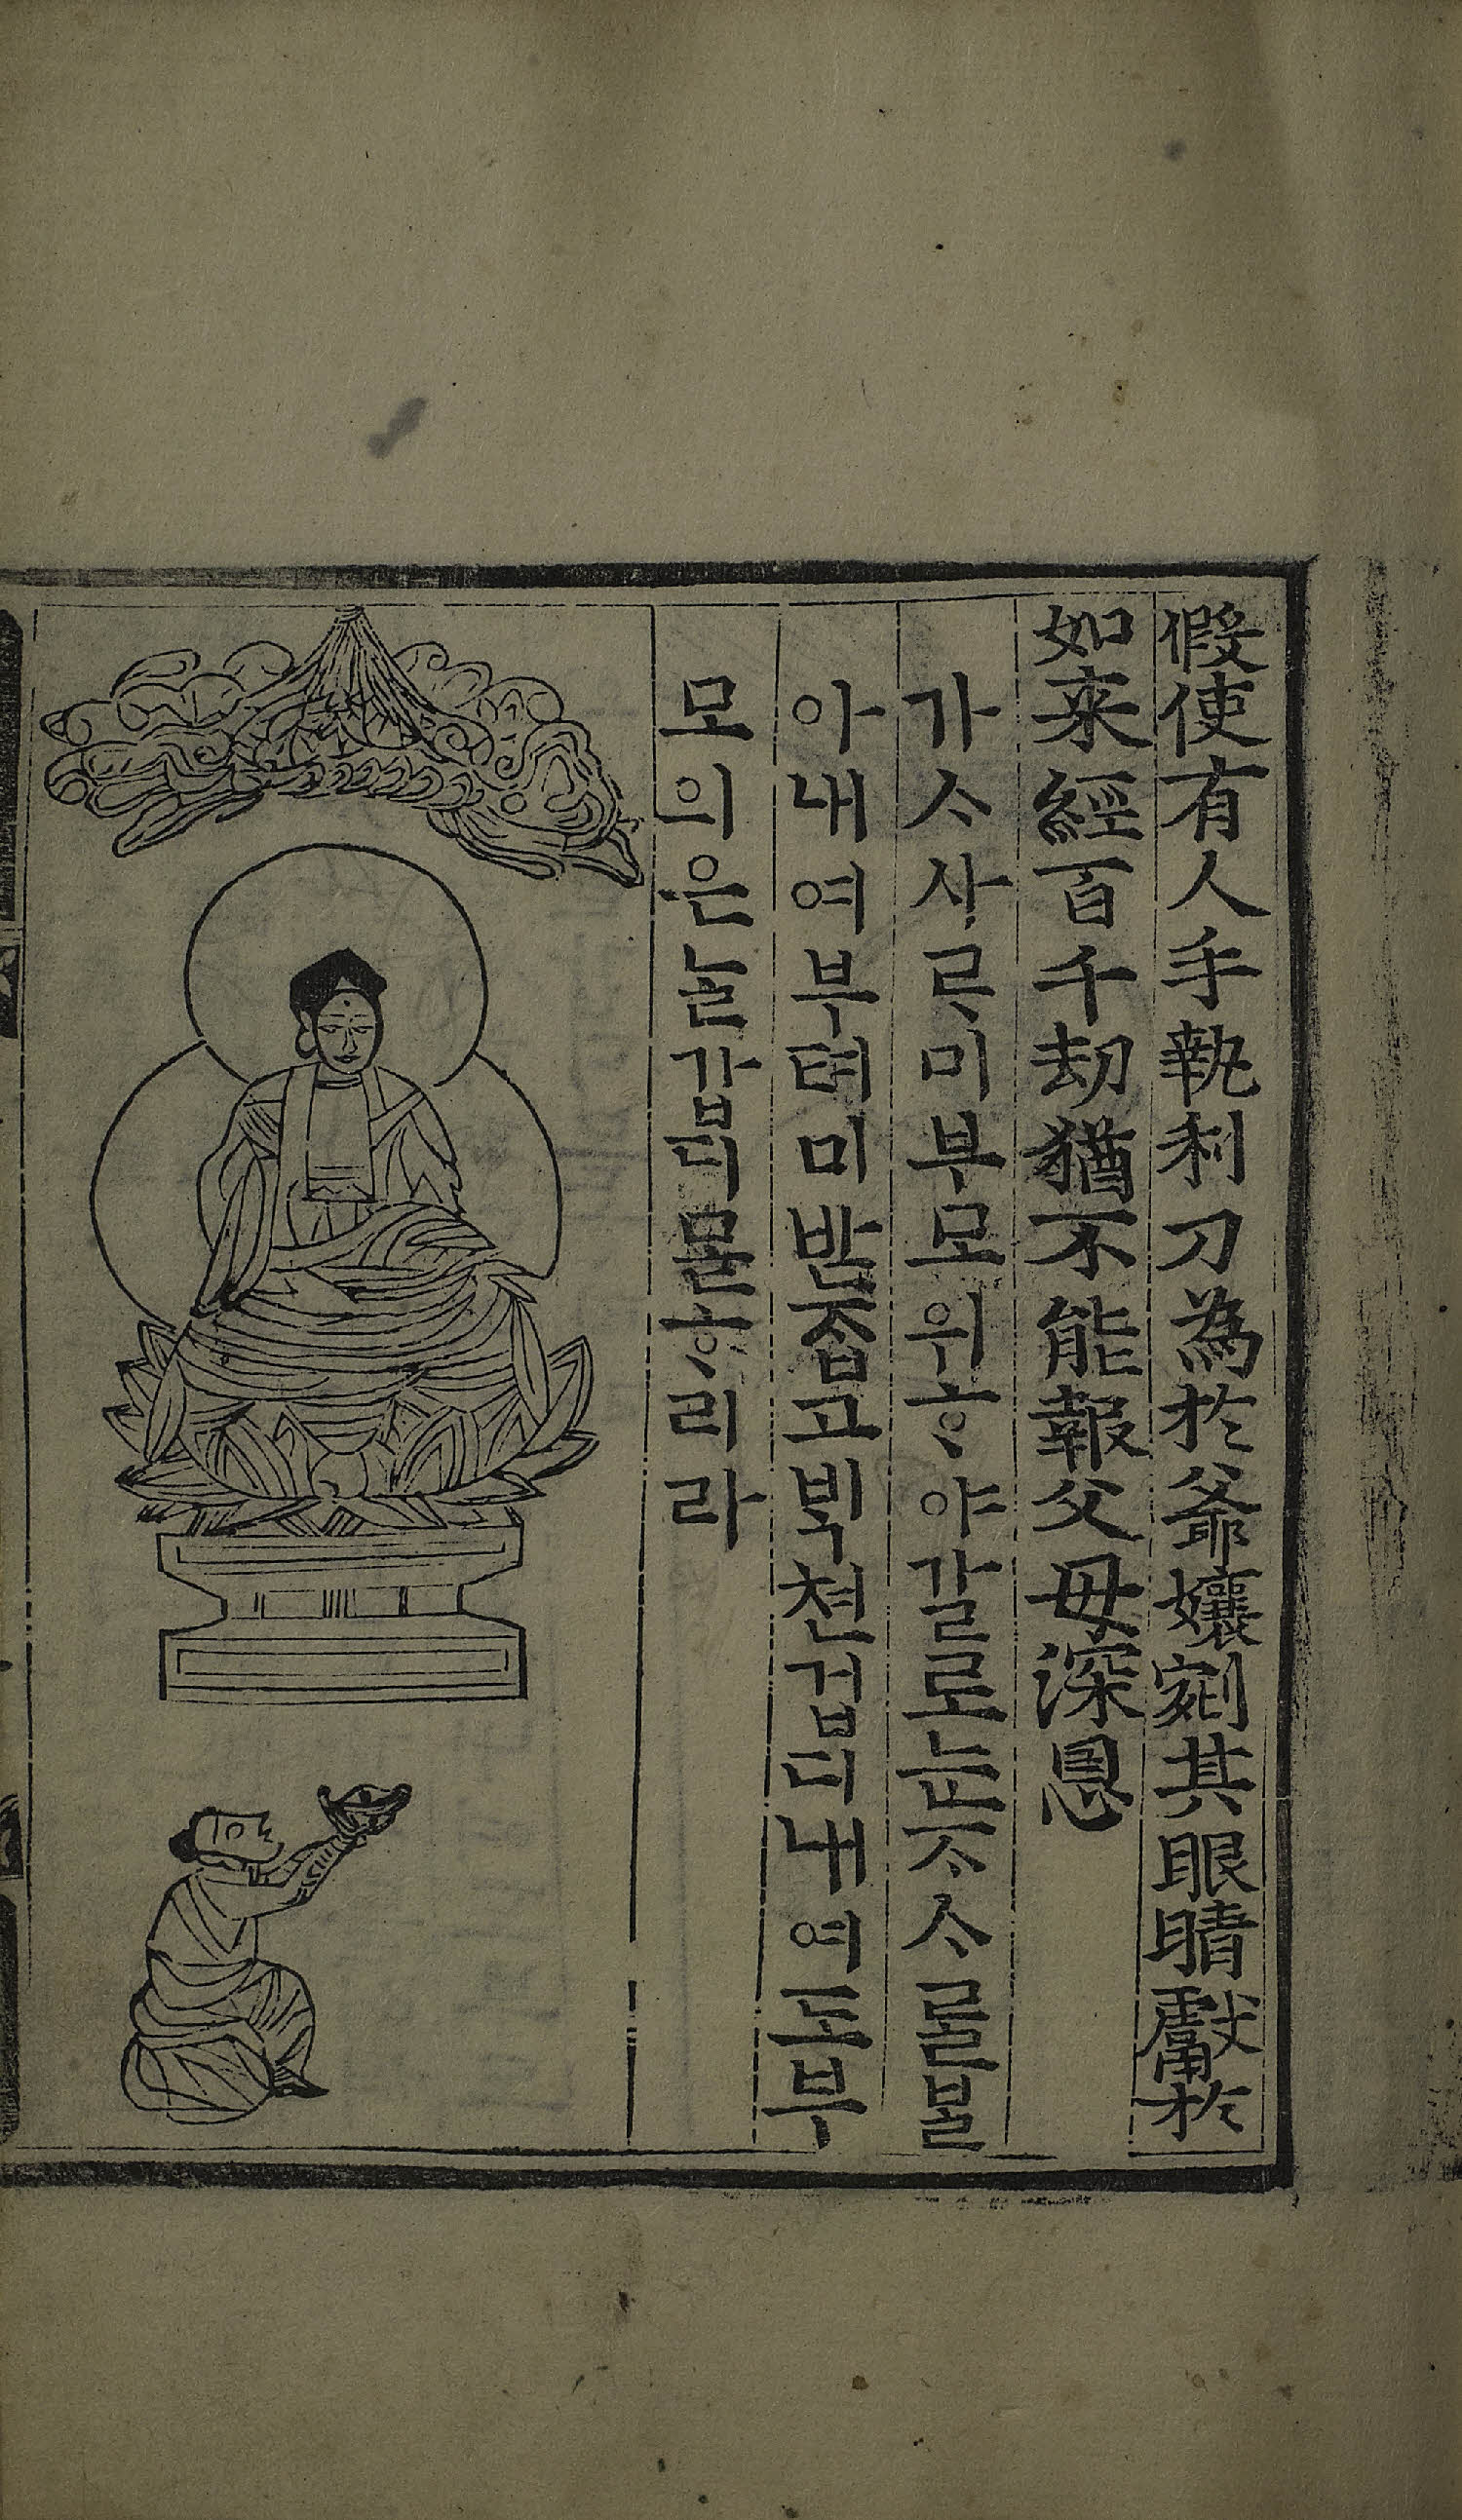 假使有人手執利刀為於爺孃剜其眼睛獻於
如來經百千劫猶不能報父母深恩
가ᄉᆞ사ᄅᆞ미부모위ᄒᆞ야갈로눈ᄌᆞᄉᆞᄅᆞᆯᄇᆞᆯ
아내여부텨미받ᄌᆞᆸ고ᄇᆡᆨ쳔겁디내여도부
모의은ᄂᆞᆯ갑디몯ᄒᆞ리라